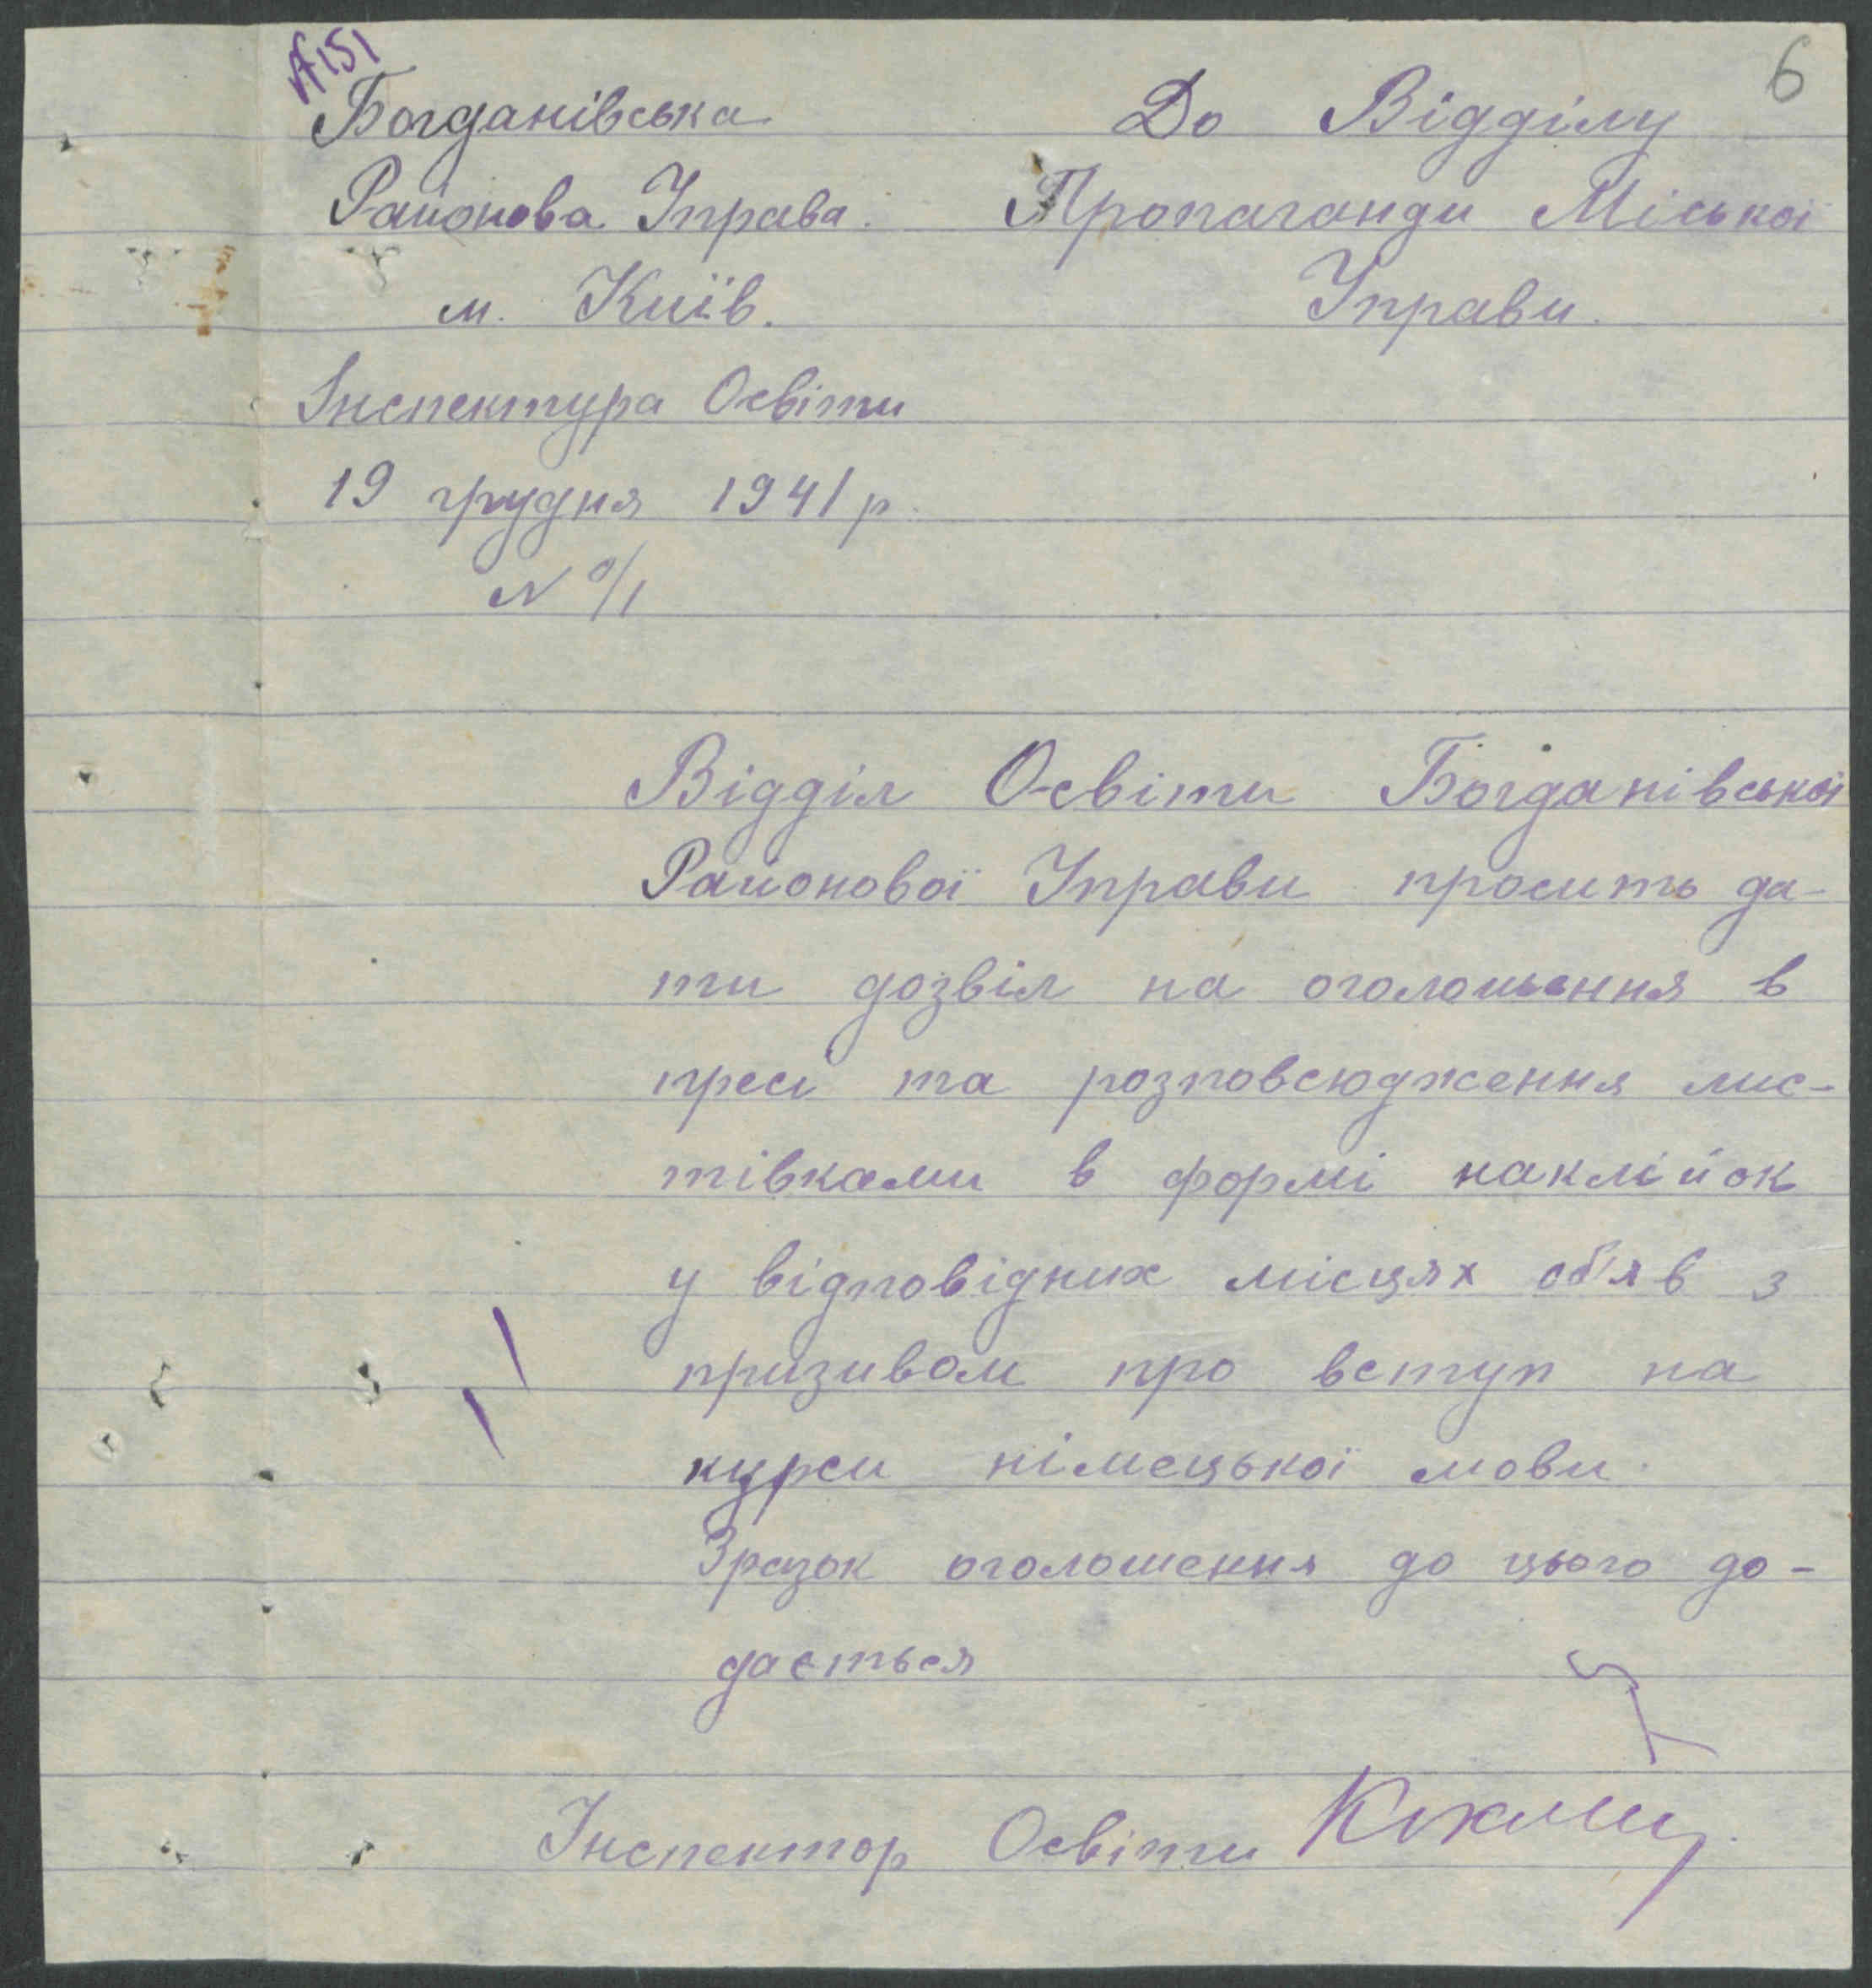 №151
6
Богданівська
Районова Управа.
м. Київ.
До Відділу
Пропаганди Міської
Управи.
Інспектура Освіти
19 грудня 1941 р.
№ 0/1
Відділ Освіти Богданівської
Районової Управи просить да-
ти дозвіл на оголошення в
пресі та розповсюдження лис-
тівками в формі наклійок
у відповідних місцях об'яв з
призивом про вступ на
курси німецької мови.
Зразок оголошення до цього до-
дається
Інспектор Освіти